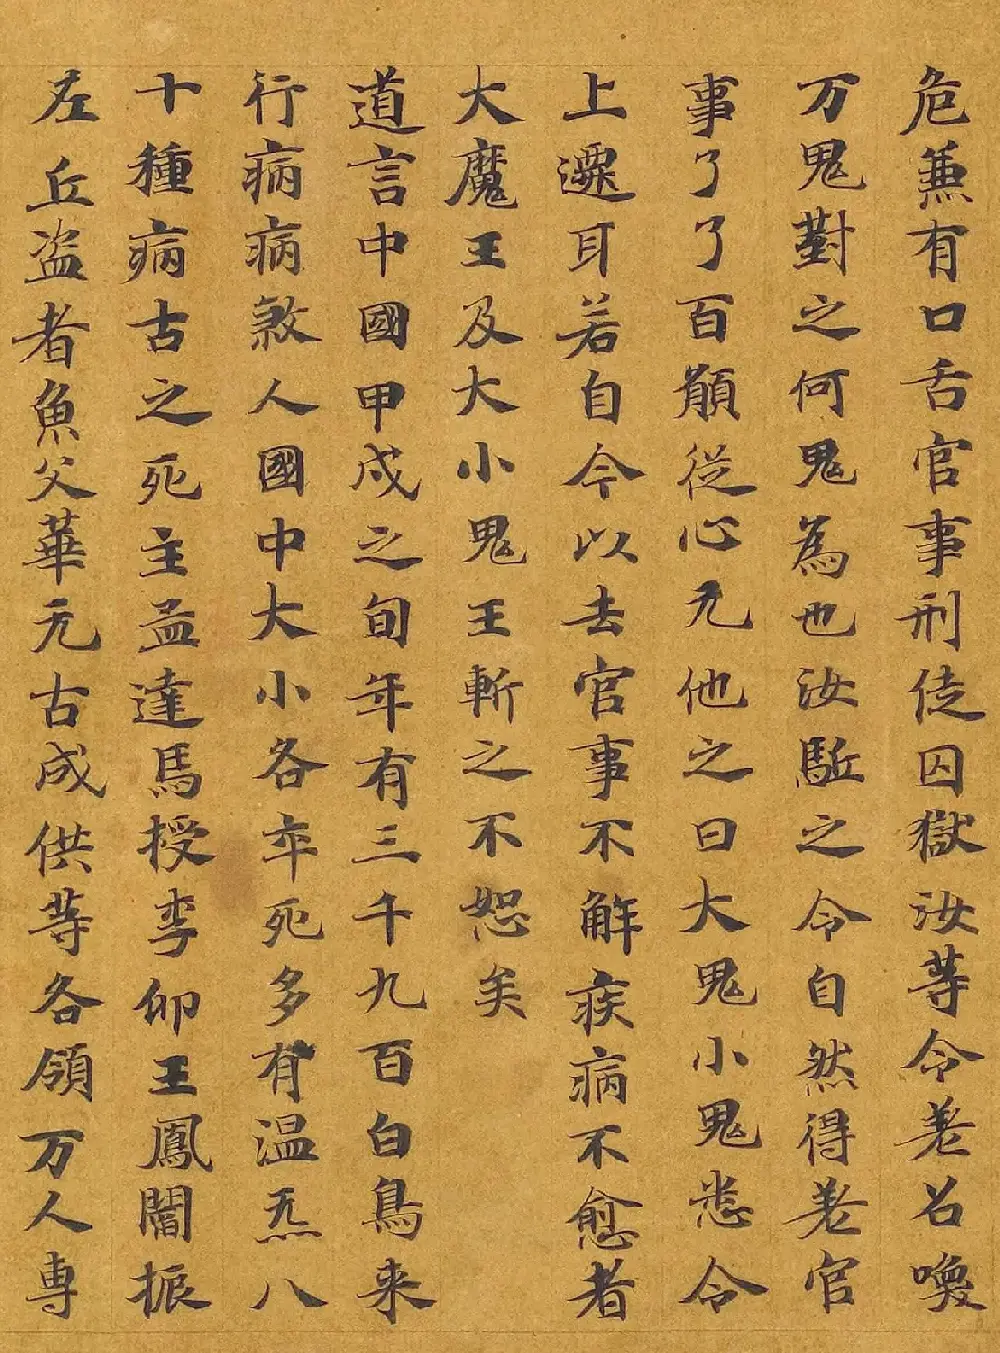 危兼有口舌官事刑徒囚獄汝等令差召喚
万鬼對之何鬼為也汝駈之令自然得差官
事了了百願從心无他之曰大鬼小鬼悉令
上遝耳若自今以去官事不解疾病不愈者
大魔王及大小鬼王斬之不恕矣
道言中國甲戌之旬年有三千九百白鳥来
行病病煞人國中大小各卒死多有温炁八
十種病古之死主孟達馬授李仰王鳳闔振
左丘盗者魚父華元古成供等各領万人専